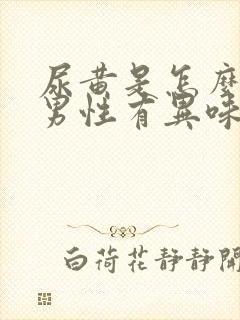 尿黄是怎麼
男性有異味
白荷花静静開